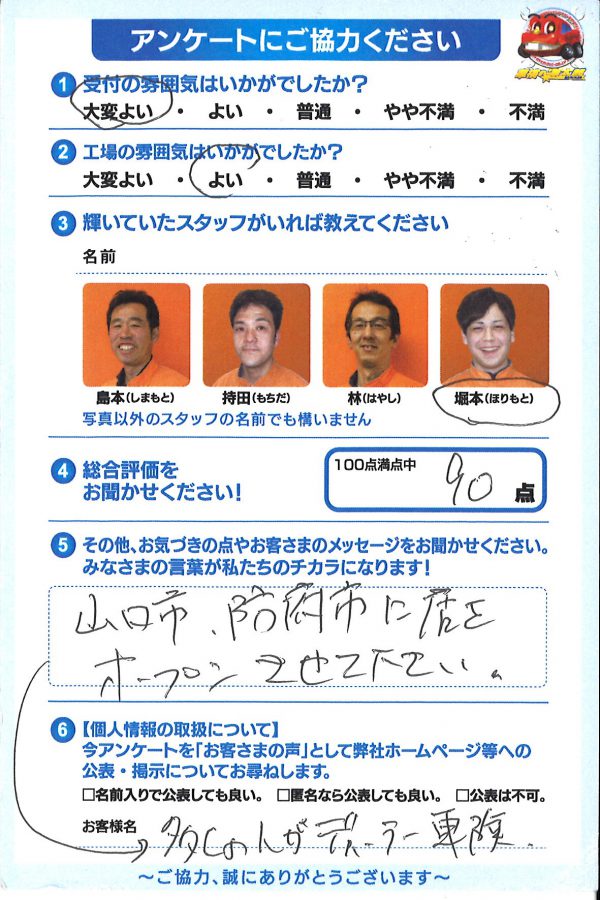 アンケートにご協力ください
1 受付の雰囲気はいかがでしたか?
大変よい ・ よい ・ 普通 ・ やや不満 ・ 不満
2 工場の雰囲気はいかがでしたか?
大変よい ・ よい ・ 普通 ・ やや不満 ・ 不満
3 輝いていたスタッフがいれば教えてください
名前
島本(しまもと) 持田(もちだ) 林(はやし) 堀本(ほりもと)
写真以外のスタッフの名前でも構いません
4 総合評価を
お聞かせください!
100点満点中 90 点
5 その他、お気づきの点やお客さまのメッセージをお聞かせください。
みなさまの言葉が私たちのチカラになります!
山口市、防府市に店を
オープンさせて下さい。
6 【個人情報の取扱について】
今アンケートを「お客さまの声」として弊社ホームページ等への
公表・掲示についてお尋ねします。
□名前入りで公表しても良い。 □匿名なら公表しても良い。 □公表は不可。
お客様名 ディーラー車険.
〜ご協力、誠にありがとうございます〜